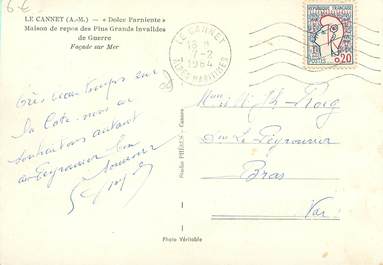 6€
LE CANNET (A.-M.) — « Dolce Farniente »
Maison de repos des Plus Grands Invalides
de Guerre
Façade sur Mer
LE CANNET
18 H
7-2
1964
ALPES-MARITIMES
REPUBLIQUE FRANÇAISE
POSTES
0,20
Très beau temps sur
la Côte. nous en
souhaitons autant
au Peyrourier
Bon
souvenir
Studio PIERRE - Cannes
Le Peyrourier
Bras
Var
Photo Véritable